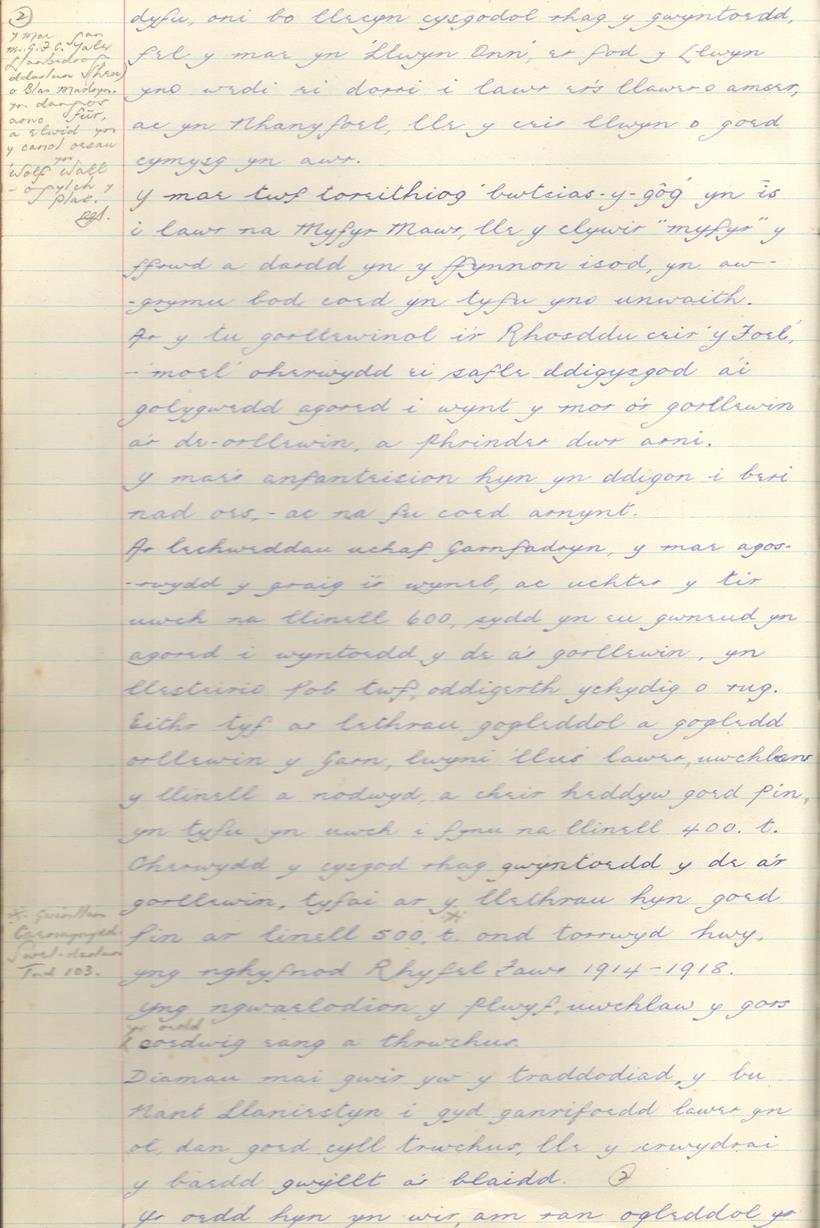 ②
y mae gan
Mr. G. J. C. Yale
Llanbedrog
ddarlun (hen)
o Blas Madryn,
yn dangos
arno fur,
a elwid yn
y canol oesau
yn
'Wolf Wall'
- o gylch y
Plas.
dyfu, oni bo llecyn cysgodol rhag y gwyntoedd,
fel y mae yn 'Llwyn Onn', er fod y Llwyn
yno wedi ei dorri i lawr ers llawer o amser,
ac yn Nhanyfoel, lle y ceir llwyn o goed
cymysg yn awr.
Y mae twf toreithiog 'bwtsias-y-gôg' yn is
i lawr na Myfyr Mawr, lle y clywir "myfyr" y
ffrwd a dardd yn y ffynnon isod, yn aw-
-grymu bod coed yn tyfu yno unwaith.
Ar y tu gorllewinol i'r Rhosddu ceir 'y Foel',
- 'moel' oherwydd ei safle ddigysgod a'i
golygwedd agored i wynt y mor o'r gorllewin
a'r de-orllewin, a phrinder dwr arni.
Y mae'r anfanteision hyn yn ddigon i beri
nad oes, - ac na fu coed arnynt.
Ar lechweddau uchaf Garnfadryn, y mae agos-
-rwydd y graig i'r wyneb, ac uchter y tir
uwch na llinell 600, sydd yn eu gwneud yn
agored i wyntoedd y de a'r gorllewin, yn
llesteirio pob twf, oddigerth ychydig o rug.
Eithr tyf ar lethrau gogleddol a gogledd
orllewin y Garn, lwyni 'llus' lawer, uwchlaw
y llinell a nodwyd, a cheir heddyw goed pin,
yn tyfu yn uwch i fynu na llinell 400. t.
Oherwydd y cysgod rhag gwyntoedd y de a'r
gorllewin, tyfai ar y llethrau hyn goed
pin ar linell 500, t.* ond torrwyd hwy,
yng nghyfnod Rhyfel Fawr 1914-1918.
* Gwinllan
Gwel-darlun
Tud 103.
Yng ngwaelodion y plwyf, uwchlaw y gors
yr oedd
coedwig eang a thrwchus.
Diamau mai gwir yw y traddodiad, y bu
Nant Llaniestyn i gyd ganrifoedd lawer yn
ol, dan goed cyll trwchus, lle y crwydrai
y baedd gwyllt a'r blaidd. ②
Yr oedd hyn yn wir, am ran ogleddol yr